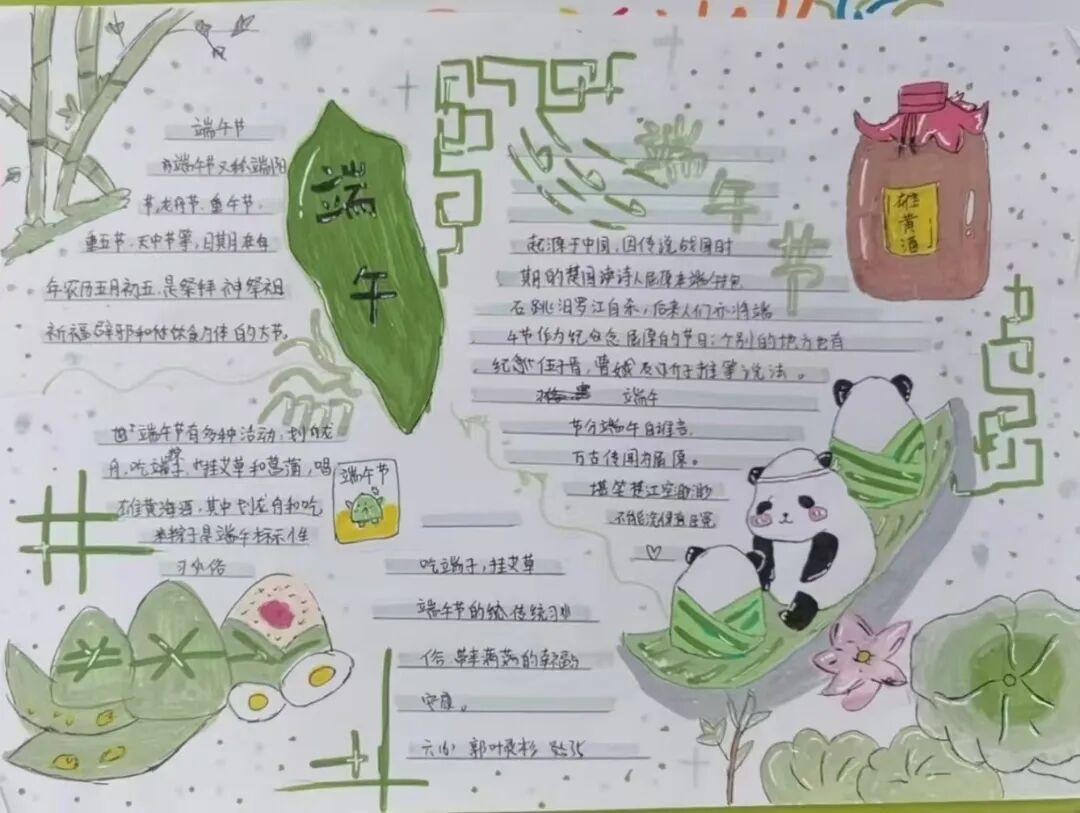 端午节
端午节又称端阳
节、龙舟节、重午节、
重五节、天中节等，日期在每
年农历五月初五，是祭拜神祭祖
祈福辟邪和饮食为体的大节。
端
午
端
午
节
起源于中国，因传说战国时
期的楚国诗人屈原在端午
石跳汨罗江自杀，后来人们亦将端
午节作为纪念屈原的节日；个别的地方也有
纪念伍子胥，曹娥及介子推等说法。
端午
节分端午自谁言，
万古传闻为屈原。
堪笑楚江空渺渺
不能洗得直臣冤
雄
黄
酒
端午节有多种活动，划龙
舟，吃粽子，挂艾草和菖蒲，喝
雄黄酒，其中划龙舟和吃
粽子是端午标示性
习俗
端午节
吃端子，挂艾草
端午节的传统习
俗，带来满满的幸福
安康。
六